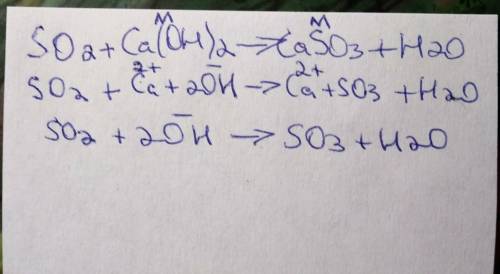 SO2 + Ca(OH)2 → CaSO3 + H2O
м м
SO2 + Ca²⁺ + 2OH⁻ → Ca²⁺ + SO3 + H2O
SO2 + 2OH⁻ → SO3 + H2O